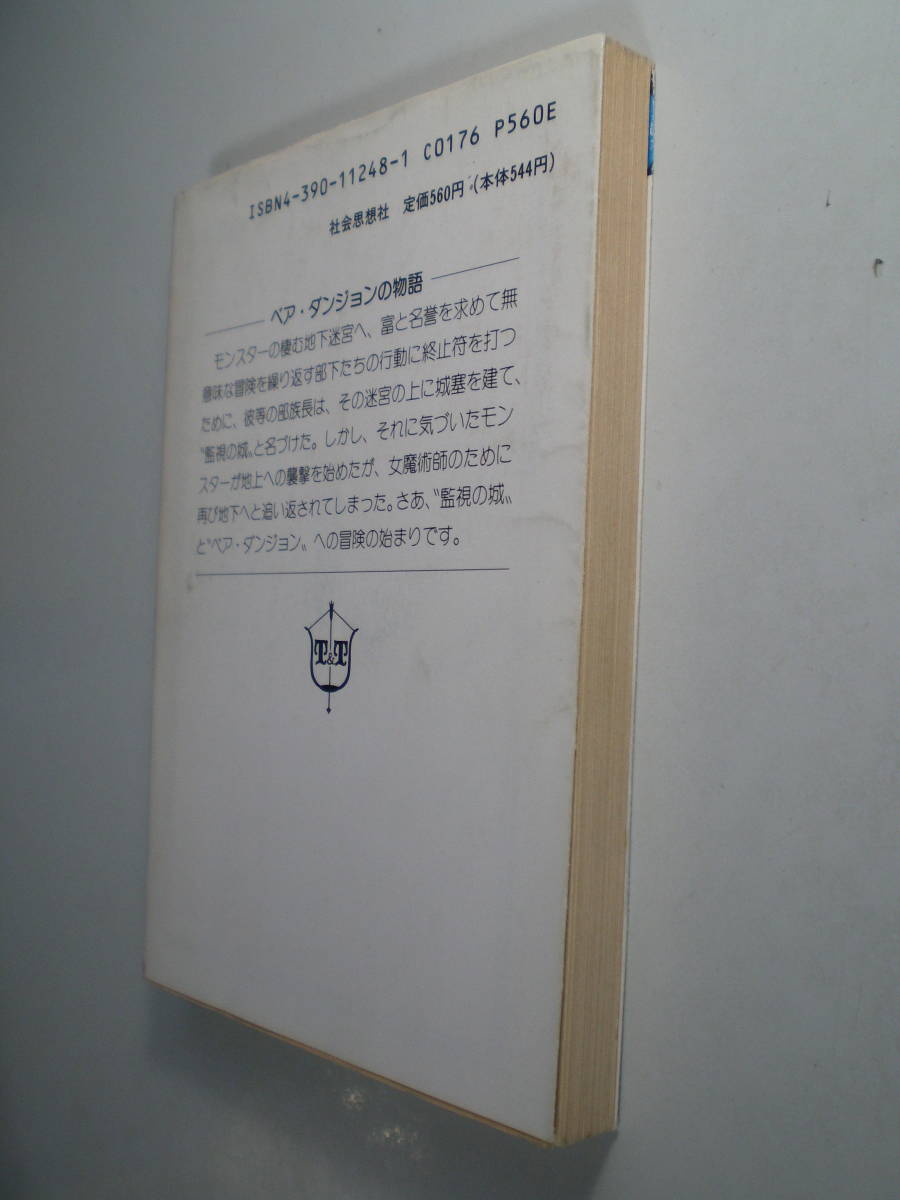 ISBN4-390-11248-1 C0176 P560E
社会思想社 定価560円(本体544円)
ベア・ダンジョンの物語
モンスターの棲む地下迷宮へ、富と名誉を求めて無
意味な冒険を繰り返す部下たちの行動に終止符を打つ
ために、彼等の部族長は、その迷宮の上に城塞を建て、
〝監視の城〟と名づけた。しかし、それに気づいたモン
スターが地上への襲撃を始めたが、女魔術師のために
再び地下へと追い返されてしまった。さあ、〝監視の城〟
と〝ベア・ダンジョン〟への冒険の始まりです。
T&T